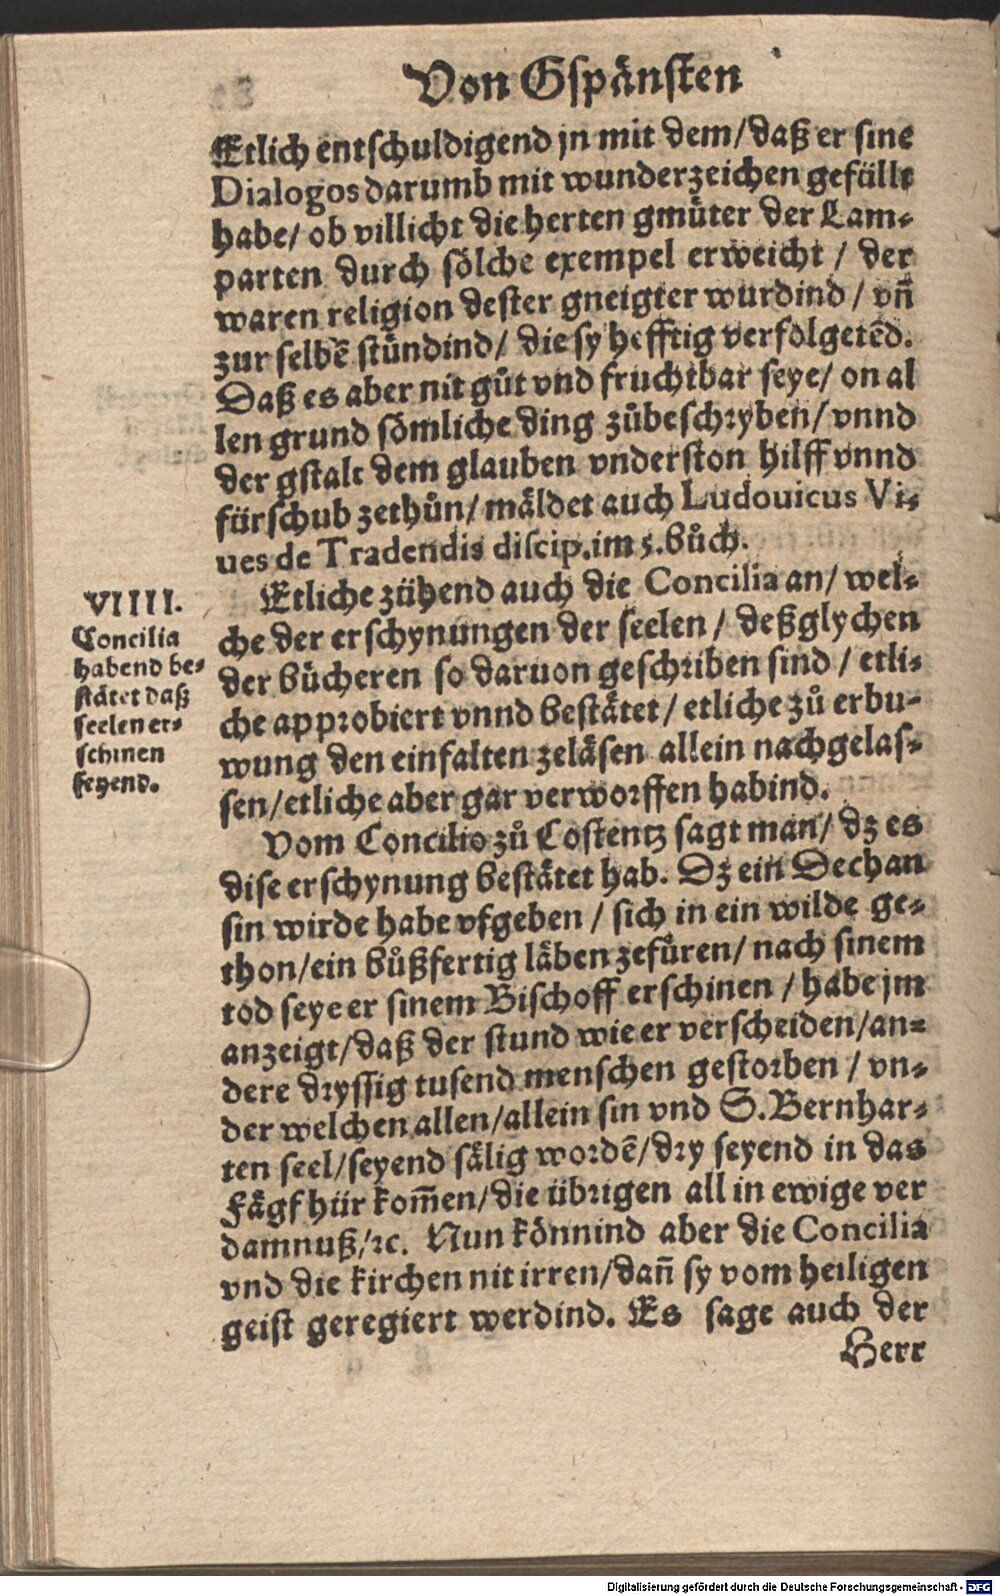 Von Gspånsten
Etlich entschuldigend jn mit dem/daß er sine
Dialogos darumb mit wunderzeichen gefüllt
habe/ ob villicht die herten gmüter der Lam⸗
parten durch sölche exempel erweicht / der
waren religion dester gneigter wurdind / vñ
zur selbē stůndind/ die sy hefftig verfolgetēd.
Daß es aber nit gůt vnd fruchtbar seye/ on al
len grund sömliche ding zůbeschryben/ vnnd
der gstalt dem glauben vnderston hilff vnnd
fürschub zethůn/ mäldet auch Ludouicus Vi⸗
ues de Tradendis discip.im 5.bůch.
VIIII.
Concilia
habend be⸗
stätet daß
seelen er⸗
schinen
seyend.
Etliche zühend auch die Concilia an/ wel⸗
che der erschynungen der seelen / deßglychen
der bücheren so daruon geschriben sind / etli⸗
che approbiert vnnd bestätet/ etliche zů erbu⸗
wung den einfalten zeläsen allein nachgelas⸗
sen/etliche aber gar verworffen habind.
Vom Concilio zů Costentz sagt man/ dz es
dise erschynung bestätet hab. Dz ein Dechan
sin wirde habe vfgeben / sich in ein wilde ge⸗
thon/ein bůßfertig läben zefüren/ nach sinem
tod seye er sinem Bischoff erschinen / habe jm
anzeigt/daß der stund wie er verscheiden/an⸗
dere dryssig tusend menschen gestorben / vn⸗
der welchen allen/allein sin vnd S.Bernhar⸗
ten seel/seyend sälig wordē/dry seyend in das
Fägfhür kom̄en/die übrigen all in ewige ver
damnuß/ꝛc. Nun könnind aber die Concilia
vnd die kirchen nit irren/dañ sy vom heiligen
geist geregiert werdind. Es sage auch der
Herr
Digitalisierung gefördert durch die Deutsche Forschungsgemeinschaft - DFG